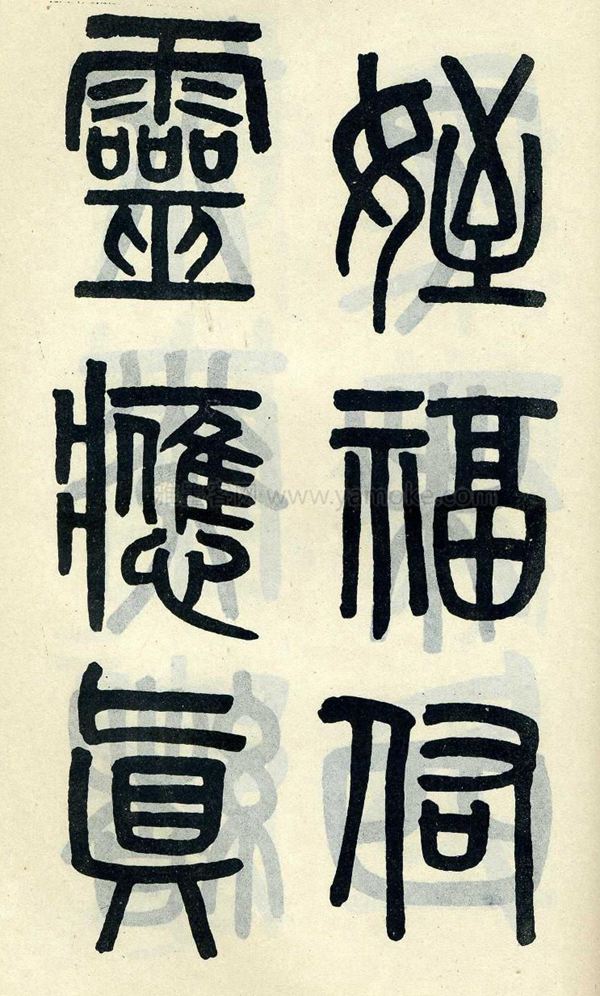 姪福伺
靈應眞
www.yamoke.com